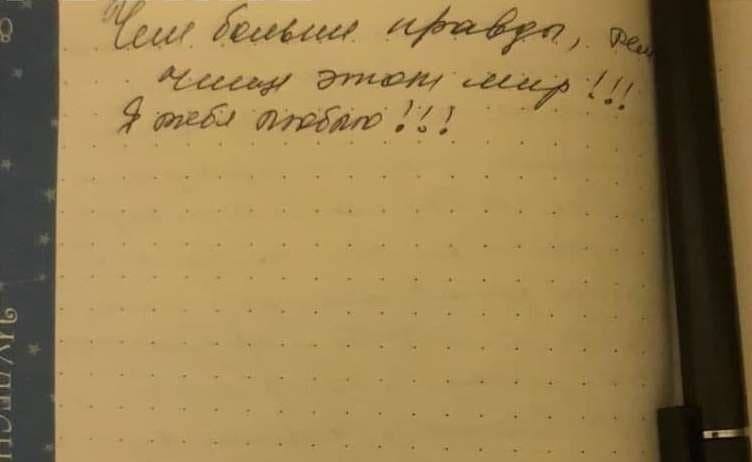 Чем больше правды, тем
чище этот мир!!!
Я тебя люблю!!!